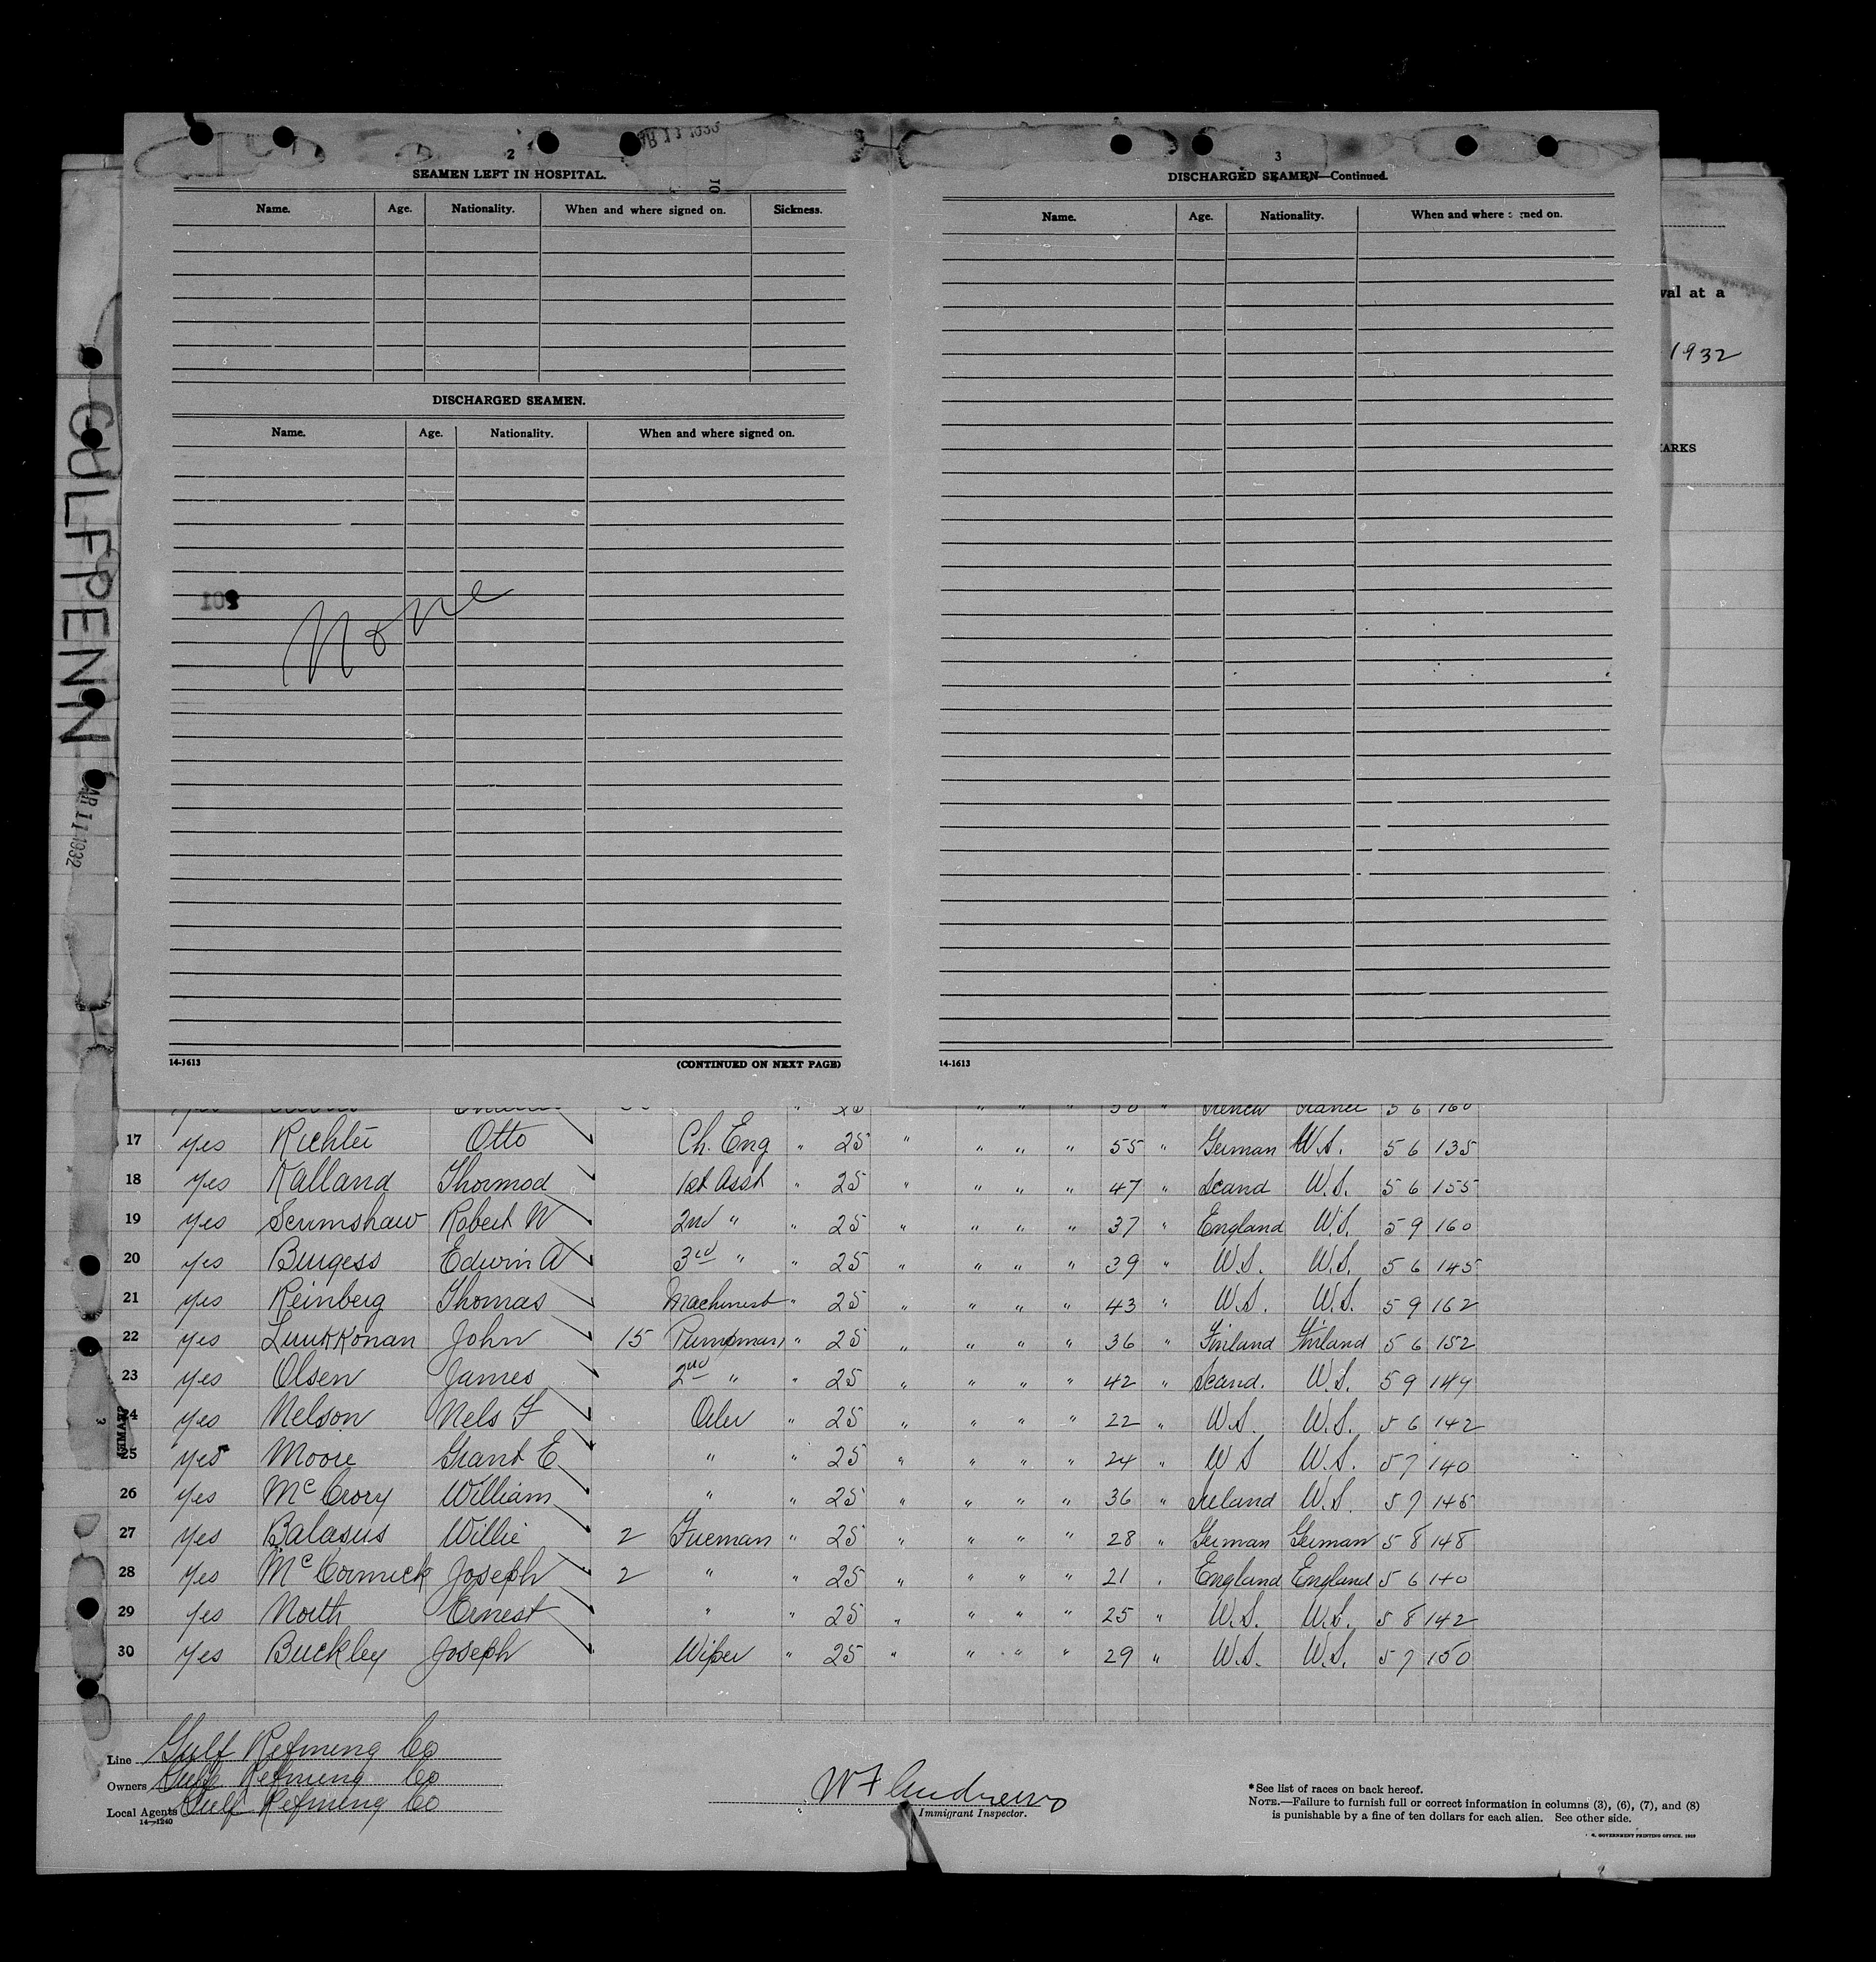 2
SEAMEN LEFT IN HOSPITAL.
Name. Age. Nationality. When and where signed on. Sickness.
DISCHARGED SEAMEN.
Name. Age. Nationality. When and where signed on.
None
14-1613 (CONTINUED ON NEXT PAGE)
3
DISCHARGED SEAMEN—Continued.
Name. Age. Nationality. When and where signed on.
14-1613
val at a
1932
ARKS
GULFPENN
AR 11 1932
17 yes Richter Otto Ch. Eng " 25 " " " " 55 " German U.S. 5 6 135
18 yes Kalland Thormod 1st Asst " 25 " " " " 47 " Scand U.S. 5 6 155
19 yes Scrimshaw Robert W 2nd " " 25 " " " " 37 " England U.S. 5 9 160
20 yes Burgess Edwin A 3rd " " 25 " " " " 39 " U.S. U.S. 5 6 145
21 yes Reinberg Thomas Machinist " 25 " " " " 43 " U.S. U.S. 5 9 162
22 yes Luukkonan John 15 Pumpman " 25 " " " " 36 " Finland Finland 5 6 152
23 yes Olsen James 2nd " " 25 " " " " 42 " Scand. U.S. 5 9 149
24 yes Nelson Nels F Oiler " 25 " " " " 22 " U.S. U.S. 5 6 142
25 yes Moore Grant E " " 25 " " " " 24 " U S U.S. 5 7 140
26 yes McCrory William " " 25 " " " " 36 " Ireland U.S. 5 7 145
27 yes Balasus Willie 2 Fireman " 25 " " " " 28 " German German 5 8 148
28 yes McCormick Joseph 2 " " 25 " " " " 21 " England England 5 6 140
29 yes North Ernest " " 25 " " " " 25 " U.S. U.S. 5 8 142
30 yes Buckley Joseph Wiper " 25 " " " " 29 " U.S. U.S. 5 7 150
Line Gulf Refining Co
Owners Gulf Refining Co
Local Agents Gulf Refining Co
14—1240
W F Andrews
Immigrant Inspector.
*See list of races on back hereof.
NOTE.—Failure to furnish full or correct information in columns (3), (6), (7), and (8)
is punishable by a fine of ten dollars for each alien. See other side.
GOVERNMENT PRINTING OFFICE